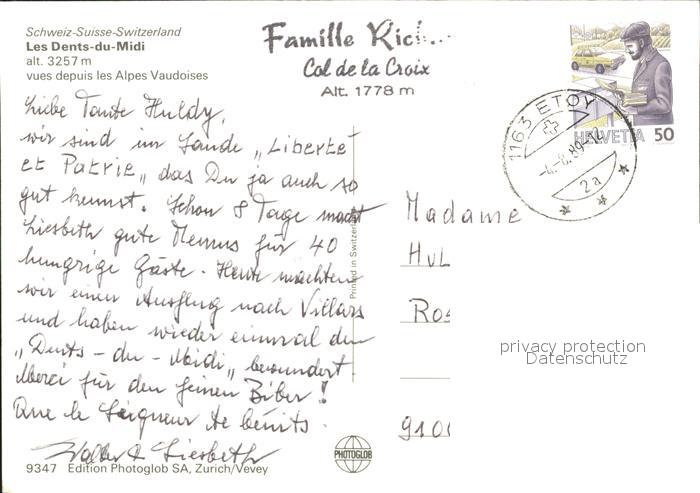 Schweiz-Suisse-Switzerland
Les Dents-du-Midi
alt. 3257 m
vues depuis les Alpes Vaudoises
Famille Ric
Col de la Croix
Alt. 1778 m
1163 ETOY
-4.-8.89-12
2a
HELVETIA 50
Liebe Tante Huldy,
wir sind im Lande „Liberté
et Patrie„ das Du ja auch so
gut kennst. Schon 8 Tage macht
Liesbeth gute Menus für 40
hungrige Gäste. Heute machten
wir einen Ausflug nach Villars
und haben wieder einmal den
„Dents-du-Midi„ bewundert
Merci für den feinen Biber!
Que le Seigneur te bénits.
Walter & Liesbeth
Printed in Switzerland
Madame
HUL
Ros
910
privacy protection
Datenschutz
PHOTOGLOB
9347 Edition Photoglob SA, Zurich/Vevey